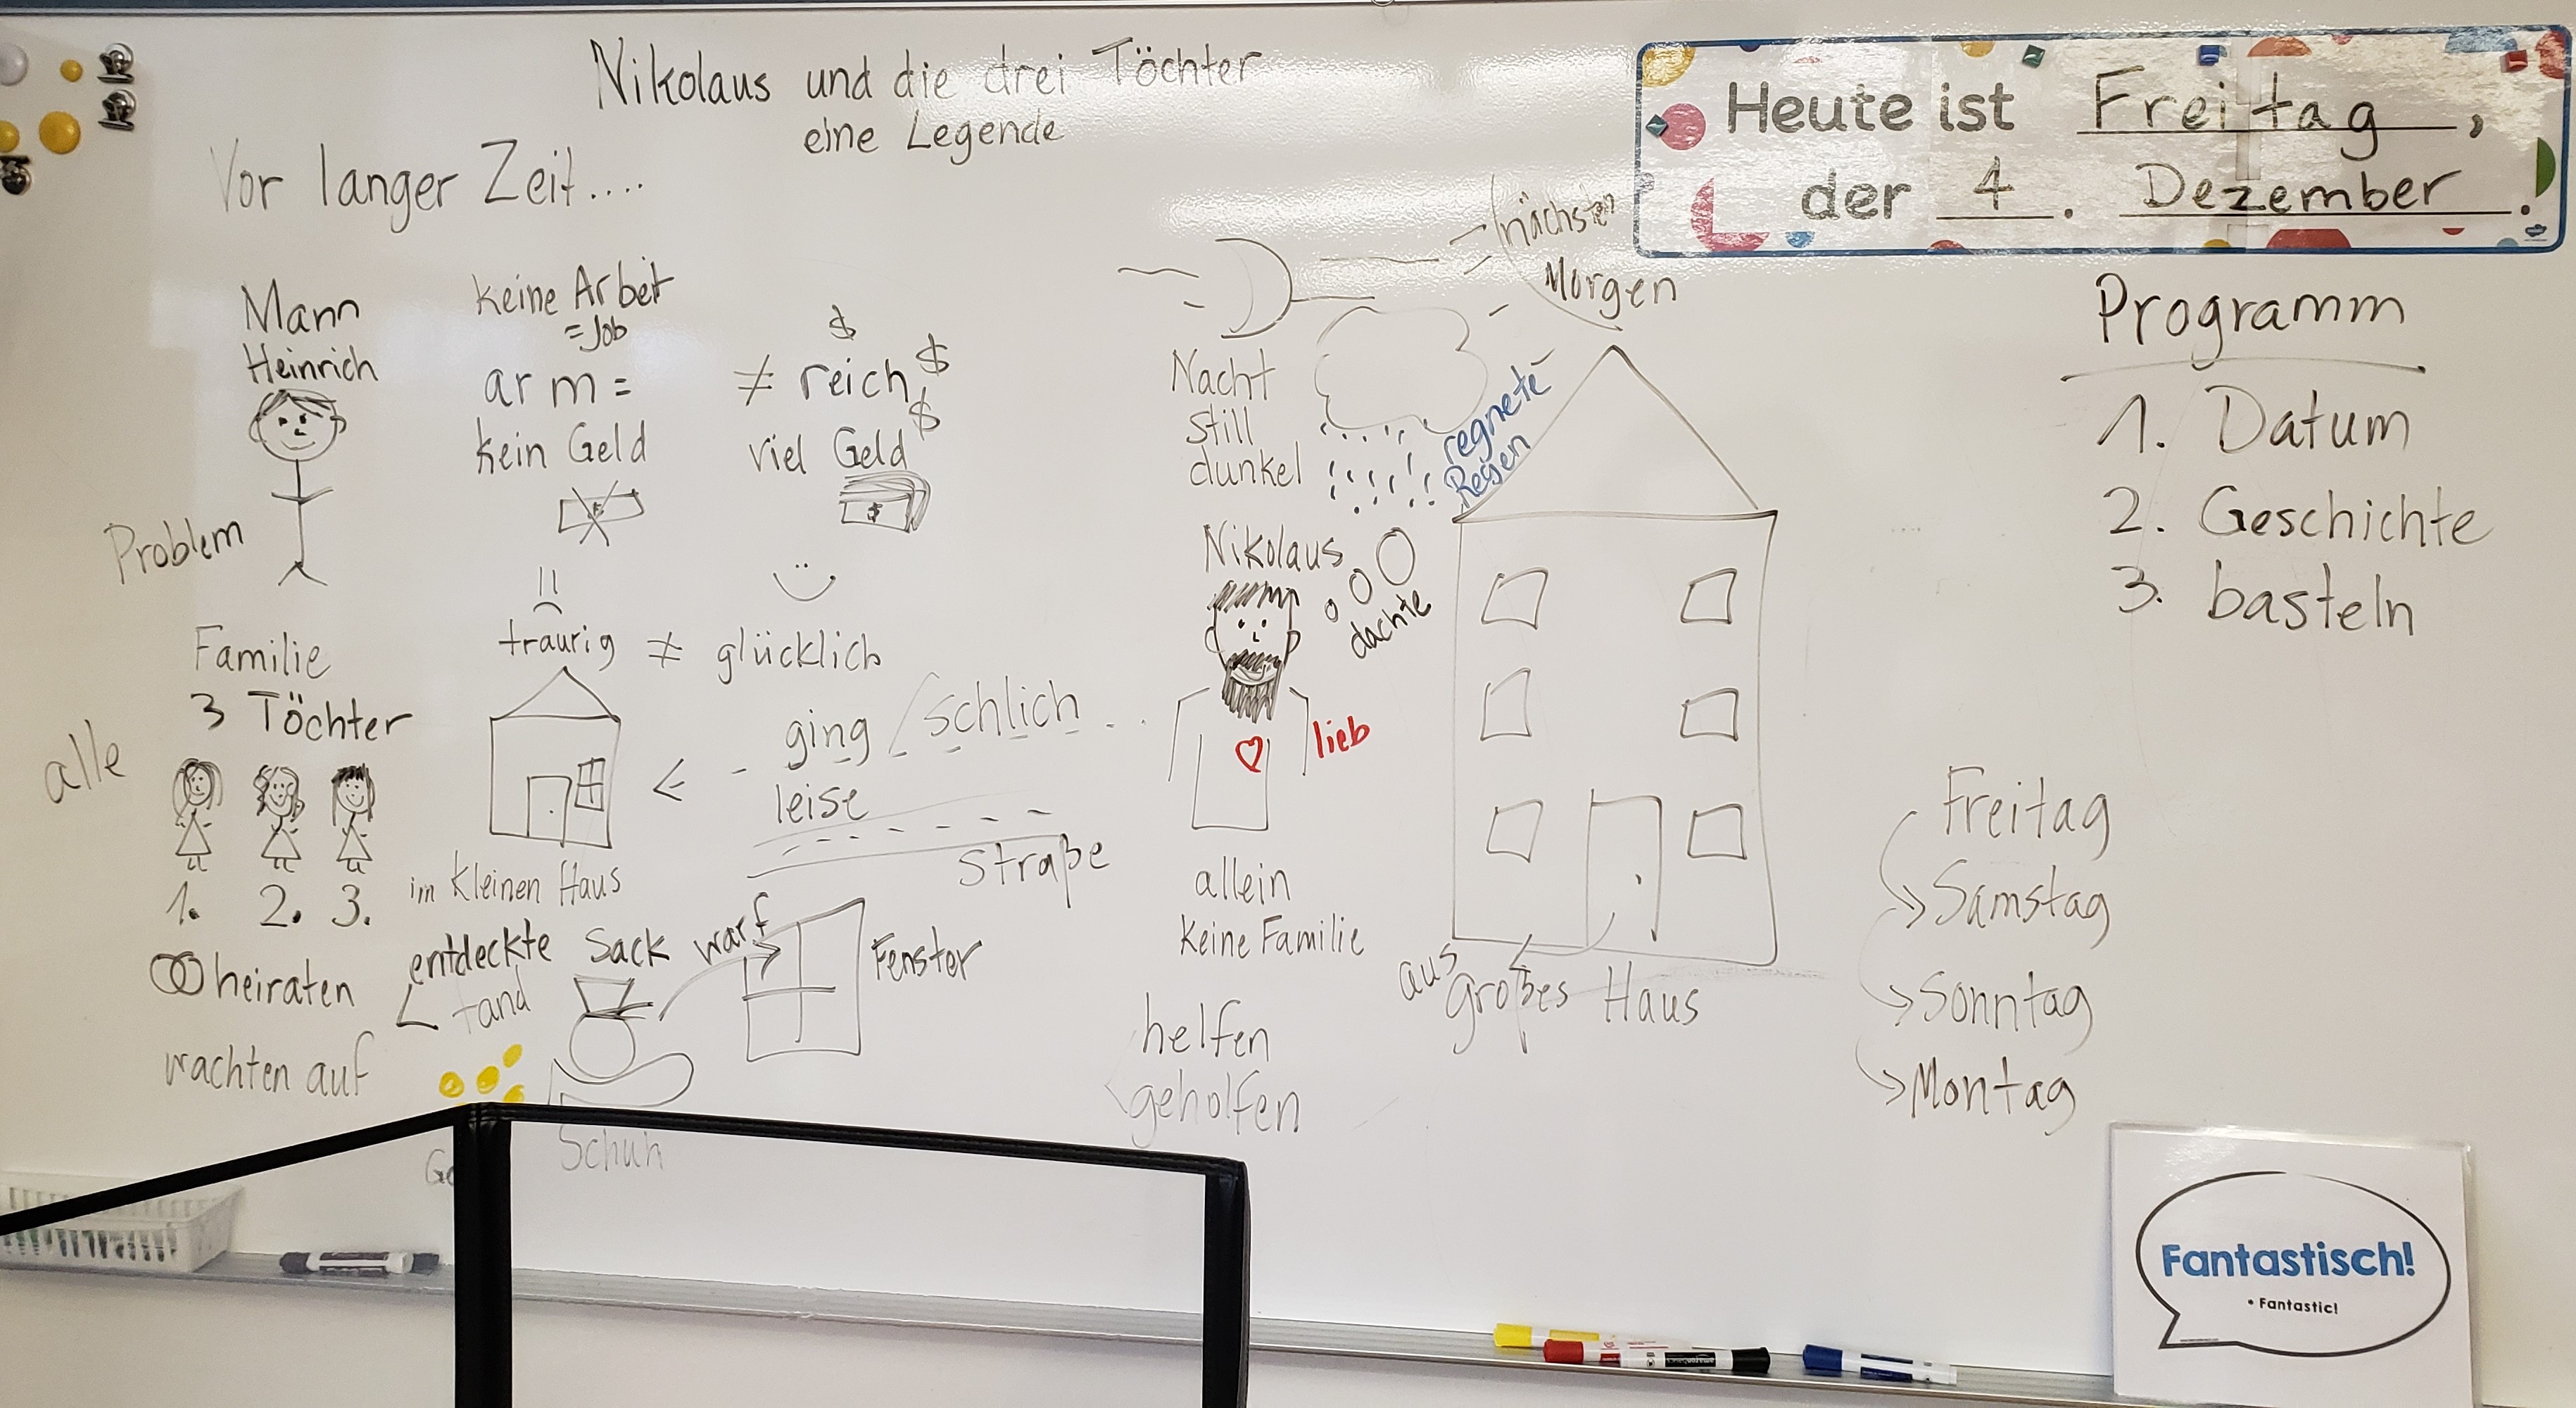 Nikolaus und die drei Töchter
eine Legende
Vor langer Zeit....
Heute ist Freitag,
der 4. Dezember.
nächsten
Morgen
Mann
Heinrich
keine Arbeit
= Job
arm =
kein Geld
≠ reich
$
$
$
viel Geld
$
Problem
traurig ≠ glücklich
Familie
3 Töchter
alle
1. 2. 3.
heiraten
wachten auf
im kleinen Haus
ging / schlich ...
leise
Straße
entdeckte
fand
Sack
warf
Fenster
Schuh
Nacht
still
dunkel
regnete
Regen
Nikolaus
dachte
lieb
allein
keine Familie
helfen
geholfen
aus
großes Haus
Programm
1. Datum
2. Geschichte
3. basteln
Freitag
Samstag
Sonntag
Montag
Fantastisch!
• Fantastic!